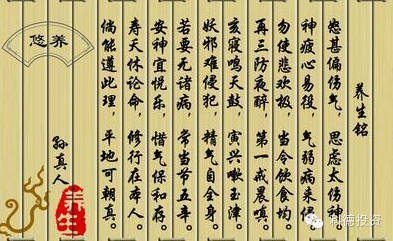 养生铭
怒甚偏伤气，思虑太伤神
神疲心易役，气弱病来侵
勿使悲欢极，当令饮食均。
再三防夜醉，第一戒晨嗔
亥寝鸣天鼓，寅兴嗽玉津。
妖邪难侵犯，精气自全身。
若要无诸病，常当节五辛。
安神宜悦乐，惜气保和存。
寿夭休论命，修行在本人
倘能遵此理，平地可朝真。
孙真人
悠养
养生
德投资